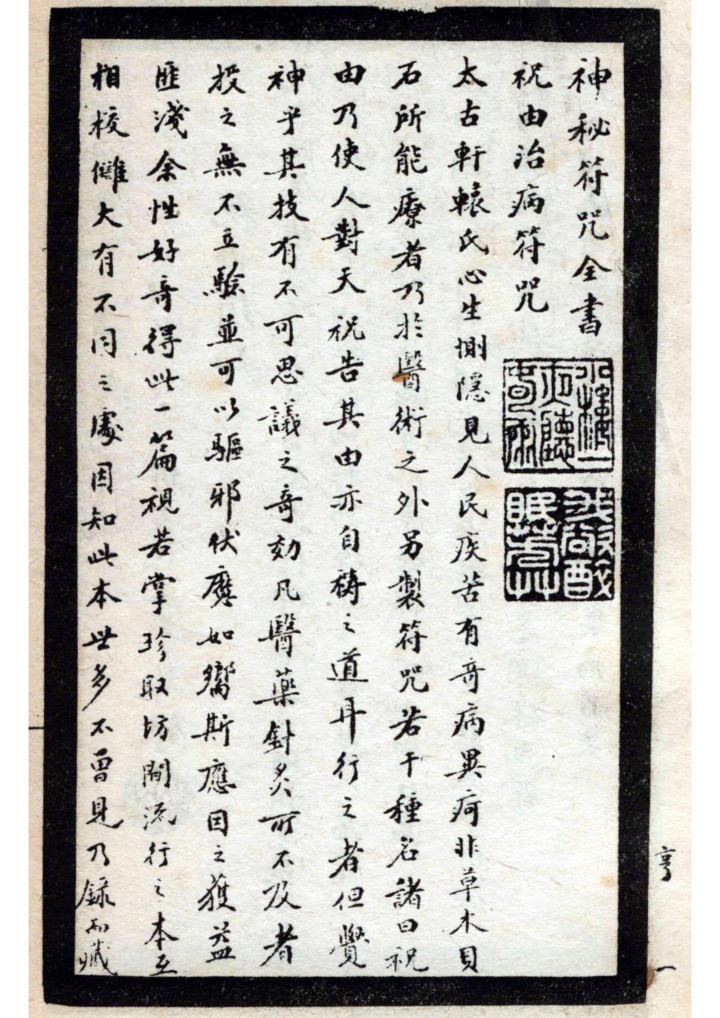 神秘符咒全書
祝由治病符咒
太古軒轅氏心生惻隱見人民疾苦有奇病異疴非草木貝
石所能療者乃於醫術之外另製符咒若干種名諸曰祝
由乃使人對天祝告其由亦自禱之道耳行之者但覺
神乎其技有不可思議之奇効凡醫藥針炙所不及者
投之無不立驗並可以驅邪伏魔如嚮斯應因之獲益
匪淺余性好奇得此一篇視若掌珍取坊間流行之本互
相校讎大有不同之處因知此本世多不曾見乃錄而藏
亨
一